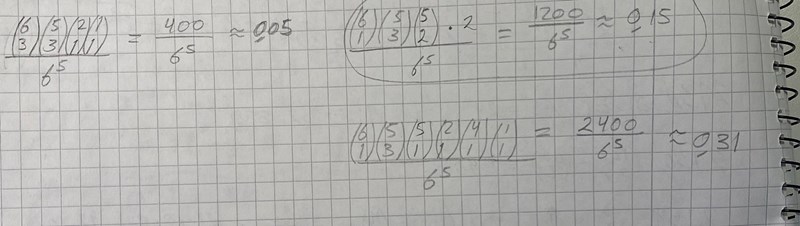 (6 3)(5 3)(2 1)(1 1) / 6^5 = 400 / 6^5 ≈ 0,05
(6 1)(5 3)(5 2) · 2 / 6^5 = 1200 / 6^5 ≈ 0,15
(6 1)(5 3)(5 1)(2 1)(4 1)(1 1) / 6^5 = 2400 / 6^5 ≈ 0,31